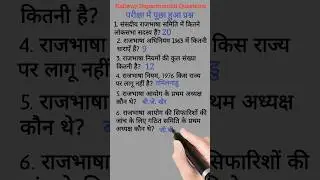 Railway Departmental Questions
परीक्षा में पूछा हुआ प्रश्न
1. संसदीय राजभाषा समिति में कितने
लोकसभा सदस्य है? 20
2. राजभाषा अधिनियम 1963 में कितनी
धाराएँ है? 9
3. राजभाषा नियमों की कुल संख्या
कितनी है? 12
4. राजभाषा नियम, 1976 किस राज्य
पर लागू नहीं है? तमिलनाडु
5. राजभाषा आयोग के प्रथम अध्यक्ष
कौन थे? बी.जी. खेर
6. राजभाषा आयोग की सिफारिशों की
जांच के लिए गठित समिति के प्रथम
अध्यक्ष कौन थे?